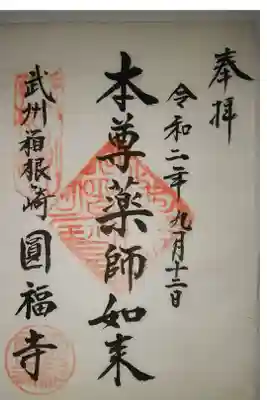 奉拝
令和二年九月十二日
本尊薬師如来
武州箱根崎
圓福寺